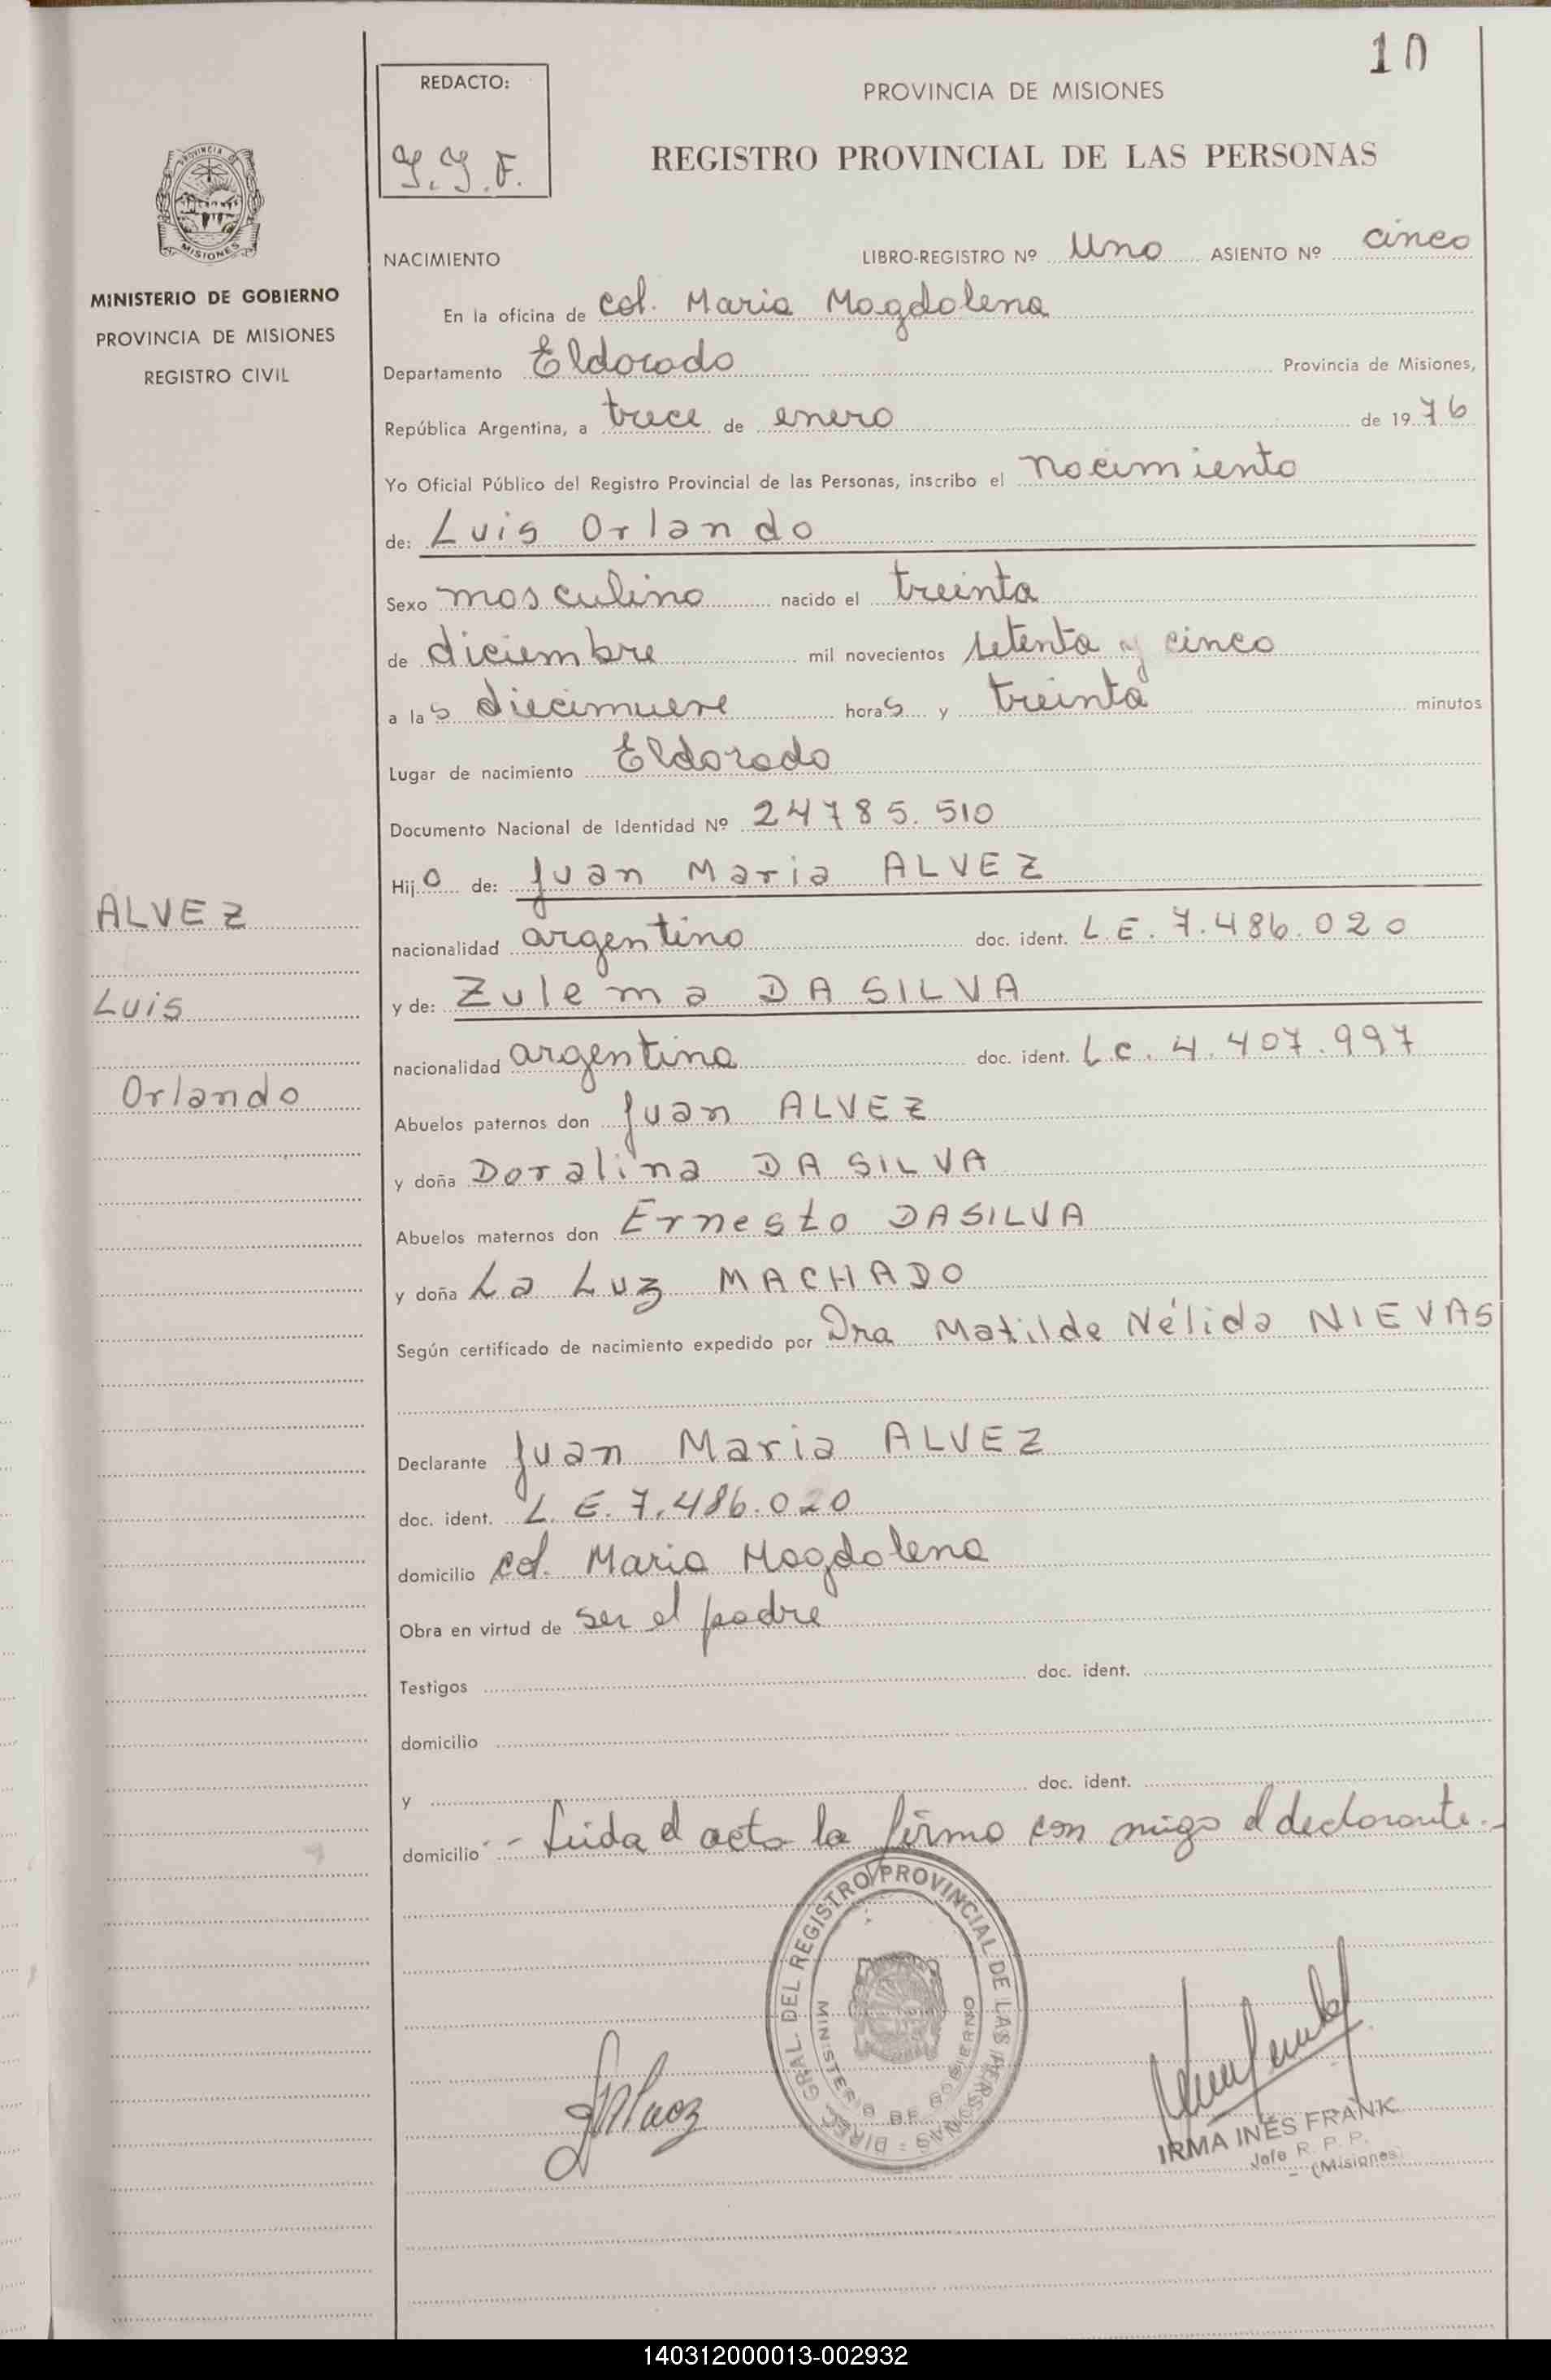 10
REDACTO:
I.I.F.
PROVINCIA DE MISIONES
REGISTRO PROVINCIAL DE LAS PERSONAS
PROVINCIA DE
MISIONES
MINISTERIO DE GOBIERNO
PROVINCIA DE MISIONES
REGISTRO CIVIL
NACIMIENTO LIBRO-REGISTRO Nº Uno ASIENTO Nº cinco
En la oficina de Col. Maria Magdalena
Departamento Eldorado Provincia de Misiones,
República Argentina, a trece de enero de 1976
Yo Oficial Público del Registro Provincial de las Personas, inscribo el nacimiento
de: Luis Orlando
Sexo masculino nacido el treinta
de diciembre mil novecientos setenta y cinco
a las diecinueve horas y treinta minutos
Lugar de nacimiento Eldorado
Documento Nacional de Identidad Nº 24785.510
Hijo de: Juan Maria ALVEZ
nacionalidad argentino doc. ident. L.E. 7.486.020
y de: Zulema DA SILVA
nacionalidad argentina doc. ident. L.C. 4.407.997
Abuelos paternos don Juan ALVEZ
y doña Doralina DA SILVA
Abuelos maternos don Ernesto DASILVA
y doña La Luz MACHADO
Según certificado de nacimiento expedido por Dra Matilde Nélida NIEVAS
Declarante Juan Maria ALVEZ
doc. ident. L.E. 7.486.020
domicilio col. Maria Magdalena
Obra en virtud de ser el padre
Testigos doc. ident.
domicilio
y doc. ident.
domicilio - Leida el acta la firma con migo el declarante.-
ALVEZ
Luis
Orlando
DIREC. GRAL. DEL REGISTRO PROVINCIAL DE LAS PERSONAS
MINISTERIO DE GOBIERNO
IRMA INÉS FRANK
Jefe R. P. P.
- (Misiones)
140312000013-002932